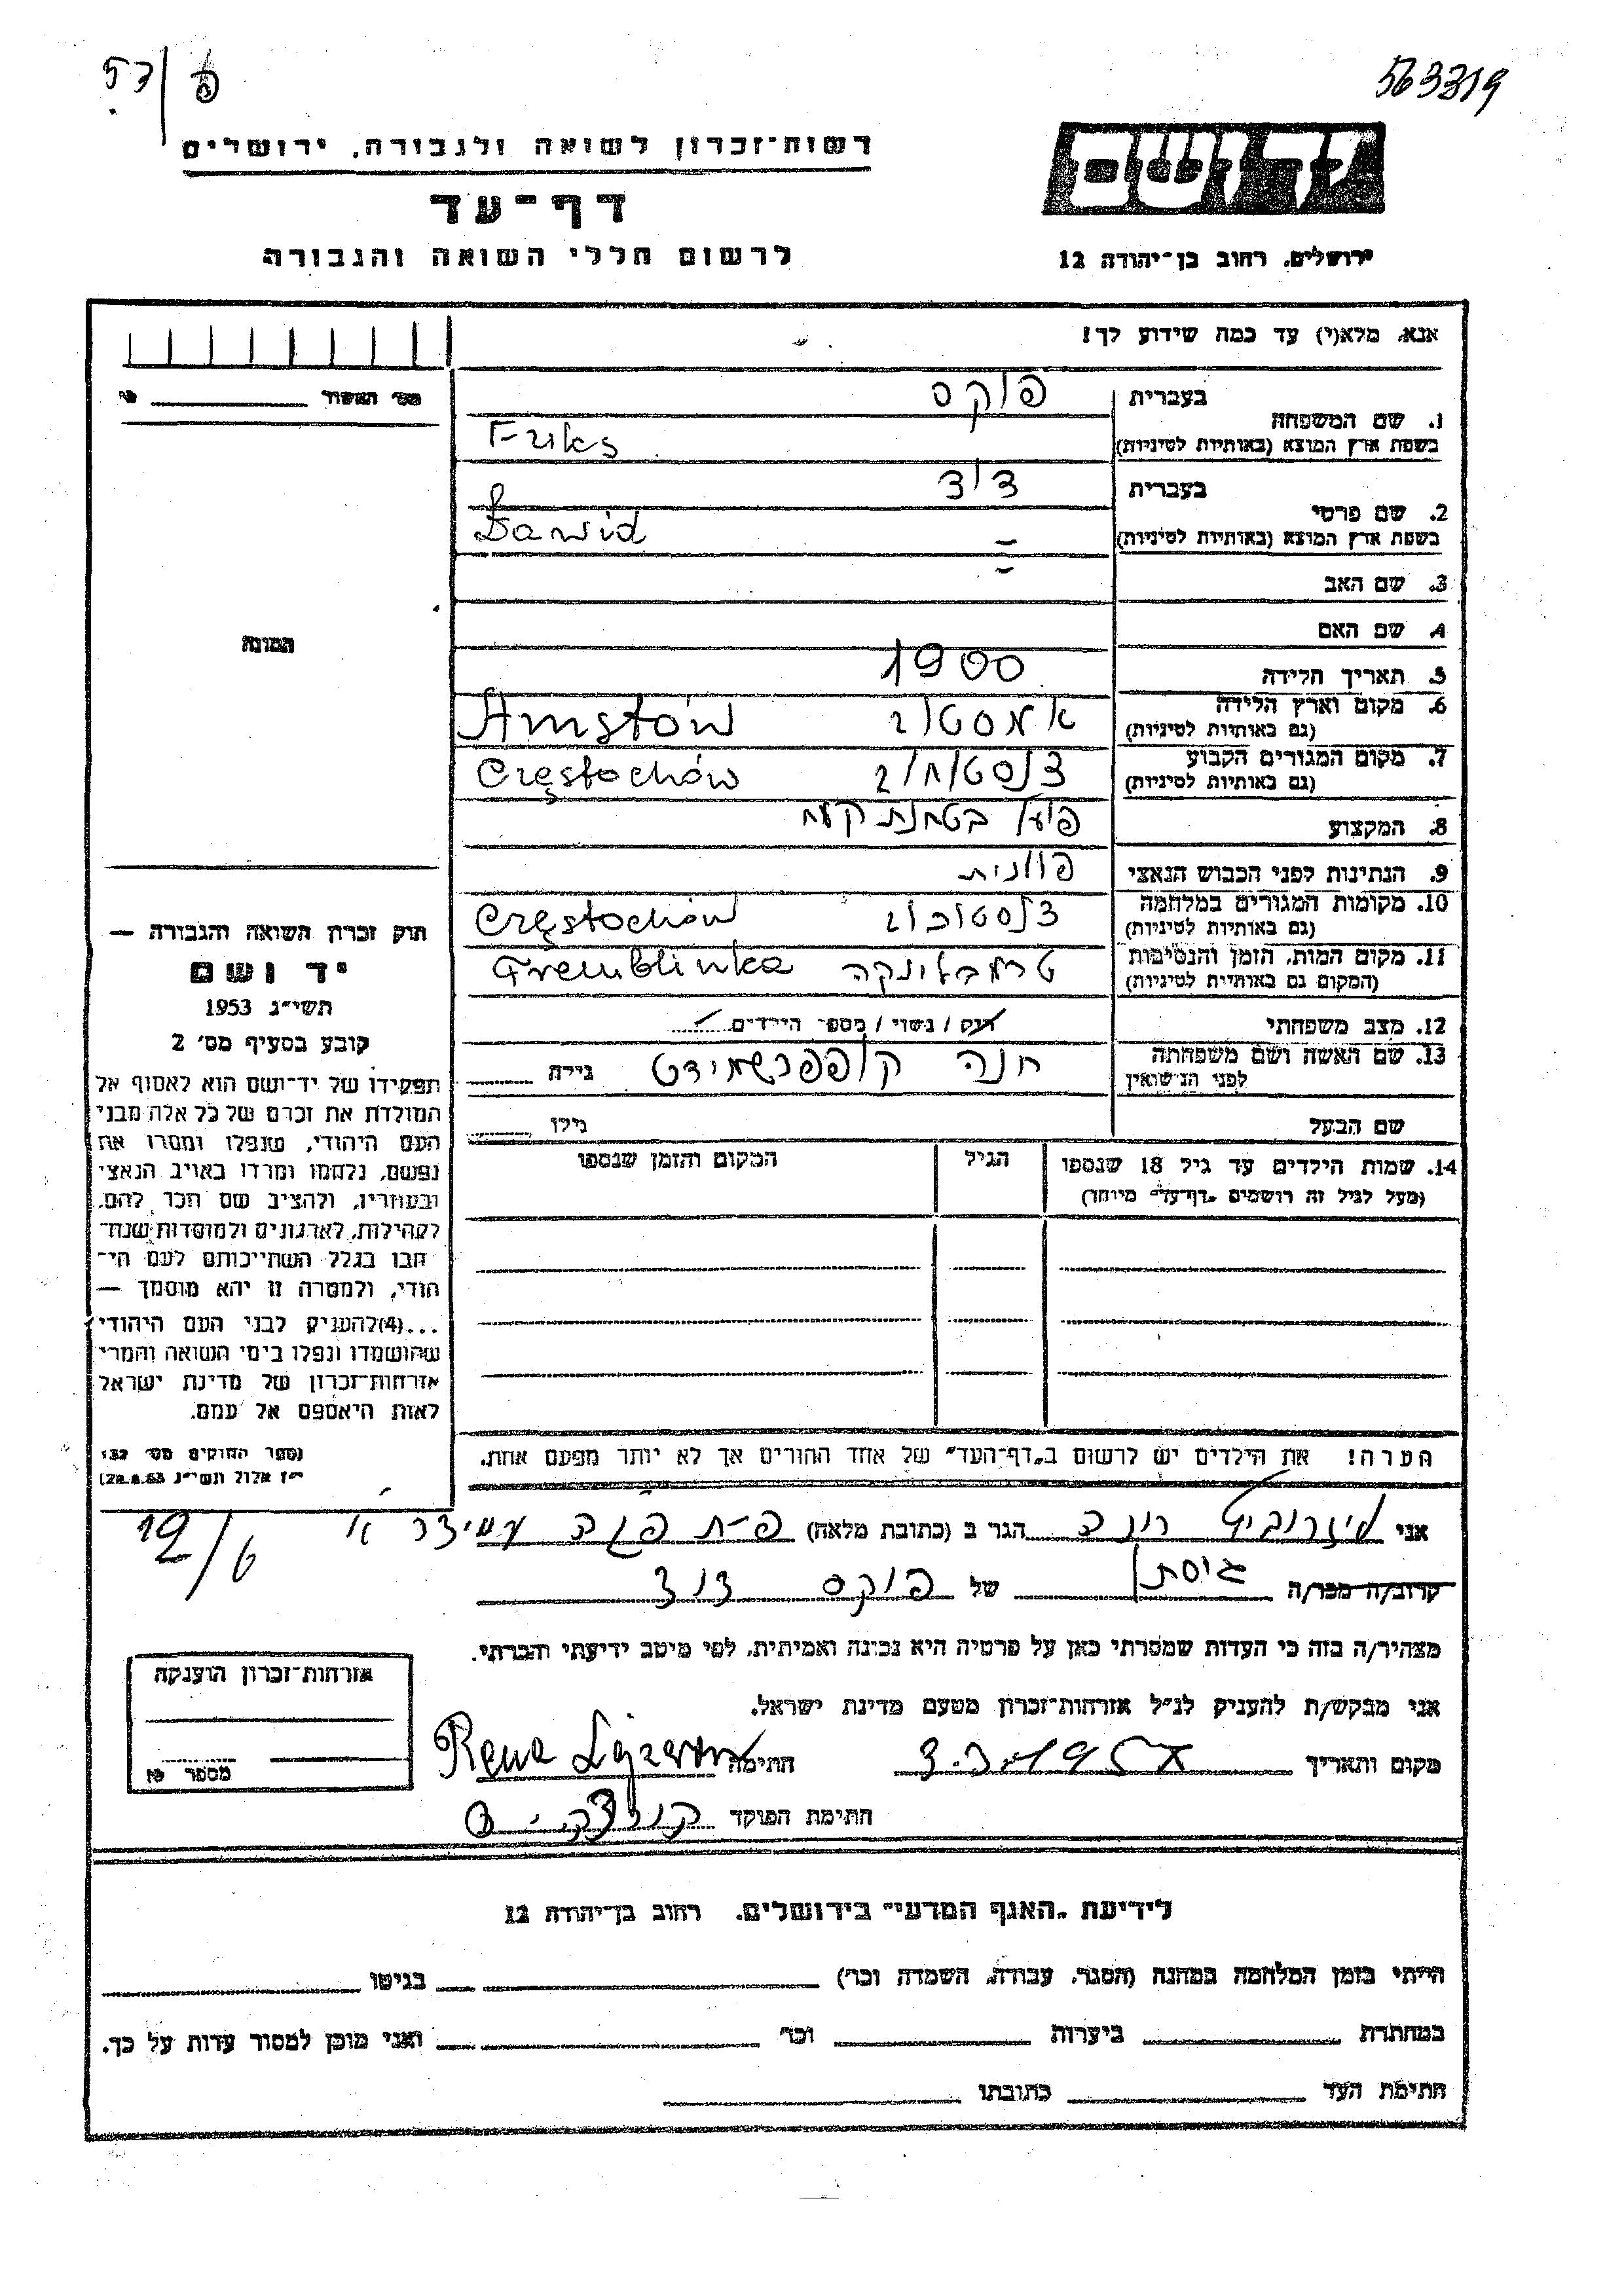 563319
53/פ
יד ושם
ירושלים, רחוב בן־יהודה 12
רשות־זכרון לשואה ולגבורה, ירושלים
דף־עד
לרשום חללי השואה והגבורה
אנא, מלא(י) עד כמה שידוע לך!
מס׳ האשור №
1. שם המשפחה
בעברית פוקס
בשפת ארץ המוצא (באותיות לטיניות) Fuks
2. שם פרטי
בעברית דוד
בשפת ארץ המוצא (באותיות לטיניות) Dawid
3. שם האב
4. שם האם
5. תאריך הלידה 1900
6. מקום וארץ הלידה אמסטוב Amstów
(גם באותיות לטיניות)
7. מקום המגורים הקבוע Częstochów
(גם באותיות לטיניות)
8. המקצוע פועל בטחנת קמח
9. הנתינות לפני הכבוש הנאצי פולנית
10. מקומות המגורים במלחמה צ׳נסטוכוב Częstochów
(גם באותיות לטיניות)
11. מקום המות, הזמן והנסיבות טרמבלינקה Tremblinka
(המקום גם באותיות לטיניות)
12. מצב משפחתי רווק / נשוי / מספר הילדים
13. שם האשה ושם משפחתה חנה קופפרשמידט גילה
לפני הנישואין
שם הבעל גילו
14. שמות הילדים עד גיל 18 שנספו הגיל המקום והזמן שנספו
(מעל לגיל זה רושמים „דף־עד״ מיוחד)
הערה! את הילדים יש לרשום ב„דף־העד״ של אחד ההורים אך לא יותר מפעם אחת.
התמונה
חוק זכרון השואה והגבורה —
יד ושם
תשי״ג 1953
קובע בסעיף מס׳ 2
תפקידו של יד־ושם הוא לאסוף אל
המולדת את זכרם של כל אלה מבני
העם היהודי, שנפלו ומסרו את
נפשם, נלחמו ומרדו באויב הנאצי
ובעוזריו, ולהציב שם וזכר להם,
לקהילות, לארגונים ולמוסדות שנח־
רבו בגלל השתייכותם לעם הי־
הודי, ולמטרה זו יהא מוסמך —
...(4)להעניק לבני העם היהודי
שהושמדו ונפלו בימי השואה והמרי
אזרחות־זכרון של מדינת ישראל
לאות היאספם אל עמם.
(ספר החוקים מס׳ 132,
י״ז אלול תשי״ג 28.8.53)
אני רונה הגר ב (כתובת מלאה) פ-ת עמידר א 19/6
קרוב/ה מכר/ה גיסתו של פוקס דוד
מצהיר/ה בזה כי העדות שמסרתי כאן על פרטיה היא נכונה ואמיתית, לפי מיטב ידיעתי והכרתי.
אני מבקש/ת להעניק לנ״ל אזרחות־זכרון מטעם מדינת ישראל.
מקום ותאריך 3.3.195 חתימה Rena
חתימת הפוקד
אזרחות־זכרון הוענקה
מספר №
לידיעת „האגף המדעי״ בירושלים, רחוב בן־יהודה 12
הייתי בזמן המלחמה במחנה (הסגר, עבודה, השמדה וכו׳) בגיטו
במחתרת ביערות וכו׳ ואני מוכן למסור עדות על כך.
חתימת העד כתובתו